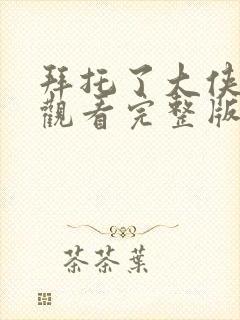 拜托了大侠
觀看完整版
茶茶葉